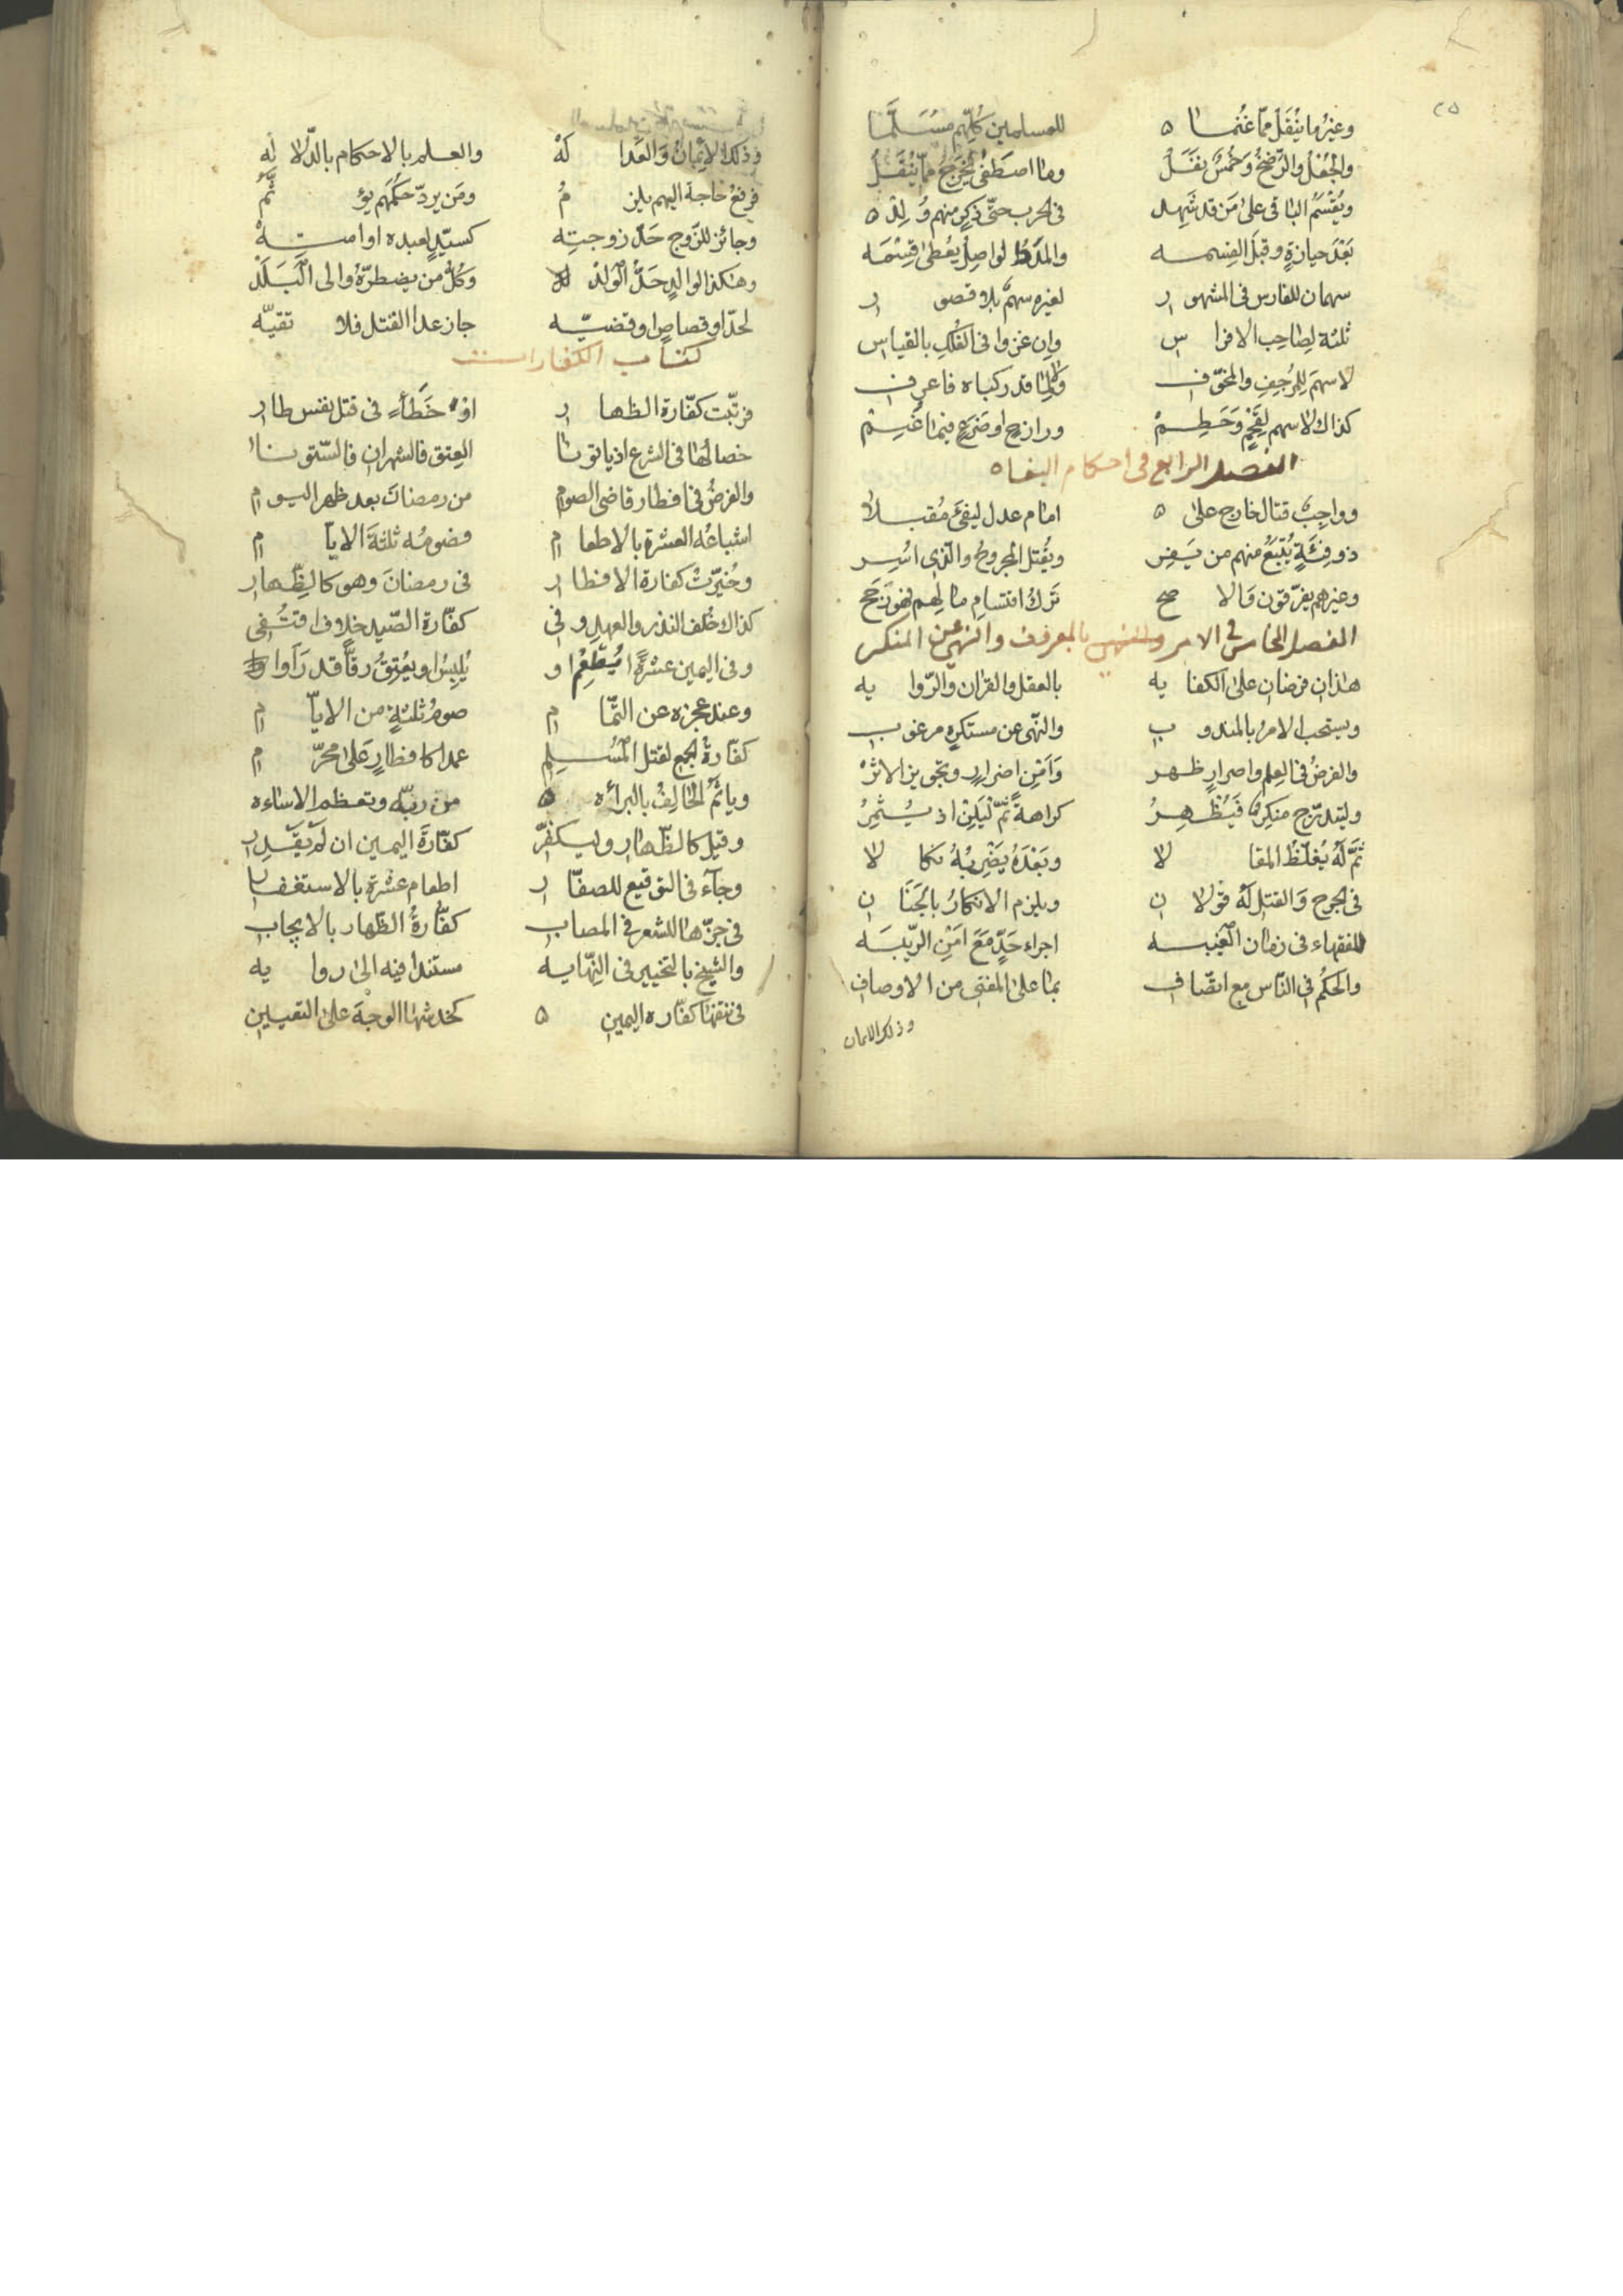 ٢٥
وغيرُ ما يُنْقَلُ ممّا غُنِما للمسلمين كُلِّهم مُسَلَّمَا
والجُعْلُ والرَّضخُ وَخُمْسٌ يفَضَلُ وما اصطَفىٰ يُخْرَجُ ممّا يُنْقَلُ
ويُقْسَمُ الباقى علىٰ مَن قد شَهِد فى الحرب حتّى ذكرٍ منهم وُلِدْ
بَعْدَ حيازةٍ وقبلَ القِسمه والمَدَدُ لواصِلٌ يُعْطىٰ قِسْمَه
سهمان للفارس فى المشهور لغيره سهمٌ بلا قصور
ثلثة لِصاحِب الافراس وان غزوا فى الفُلكِ بالقياس
لا سهمَ لِلمُرجِفِ والمخوّف ولا لِما قد ركباه فاعرف
كذاك لا سهم لِقَحْمٍ وَحَطِمْ ورازحٍ او ضَرَعٍ فيما غُنِمْ
الفصل الرابع فى احكام البغاه
وواجِبٌ قتال خارج علىٰ امام عدل ليفىَٔ مُقبلا
ذو فِئَةٍ يُتْبَعُ منهم من يَفِر ويُقتل المجروحُ والّذى اُسِر
وغيرهم يفرّقون فالاصح تَركُ اقتسامِ ما لهم فهو رَجَح
الفصل الخامس فى الامر بالمعروف والنهى عن المنكر
هٰذان فرضان علىٰ الكفايه بالعقل والقران والرّوايه
ويستحب الامرُ بالمندوب والنّهى عن مستكرهٍ مرغوب
والفرضُ فى العِلم واصرارٍ ظهر وَاَمْنِ اضرارٍ وتجويز الاثرْ
وليتدرّج منكِرٌ فَيُظْهِرُ كراهةً ثمّ لْيَلِنْ اذ يُثْمِرُ
ثمّ لَهُ يُغلّظُ المقالا وبَعْدَهُ يَضْرِبُهُ نكالا
فى الجرح وَالقتل لَهُ قولان ويلزم الانكارُ بالجَنان
للفقهاء فى زمان الغَيْبه اجراء حَدٍّ مَعَ اَمْنِ الرّيبَه
والحكمُ فى النّاس مع اتّصاف بما علىٰ المفتى من الاوصاف
وذلك الايمان
وذلك الايمانُ وَالعَدالَهْ والعلم بالاحكام بالدّلالَه
فرفعُ حاجة اليهم يلزمُ ومَن يردّ حُكْمَهم يؤثَّمُ
وجائز للزّوج حَدّ زوجتِه كسيّدٍ لعبده او امتِهْ
وهٰكذا لوالدٍ حَدُّ الوَلَدْ وكُلُّ من يضطرّهُ والى البَلَدْ
لحدّ او قصاصٍ او قضيّه جاز عدا القتل فلا تقيّه
كتاب الكفارات
فرتّبت كفّارة الظهار اوْ خَطَأٍ فى قتل نفس طار
خصالُها فى الشرع اذ ياتونا العِتق فالشهران فالسّتونا
والفرضُ فى افطار قاضى الصوم من رمضانَ بعد ظهر اليوم
اشباعُه العشرة بالاطعام فصومُه ثلثةَ الايّام
وخُيّرَتْ كفارة الافطار فى رمضانَ وهو كالظّهار
كذاك خُلف النذر والعهد وفى كفّارة الصّيد خلاف اقتُفى
وفى اليمين عشرةً يُطْعِمُ او يُلبِسُ او يُعْتِقُ رقّاً قد رَاَوا
وعند عجزه عن التّمام صومُ ثلثةٍ من الايّام
كفّارةُ الجمع لقتل المُسْلِم عمدا كافطارٍ عَلىٰ محرّم
وياثمُ الحالِفُ بالبرائه من ربّه وتعظم الاسٰاءه
وقيل كالظّهار وليكفّر كفّارةَ اليمين ان لَمْ يَقْدِر
وجآء فى التوقيع للصفّار اطعام عشرة بالاستغفار
فى جزّها للشعر فى المصاب كفّارةُ الظّهار بالايجاب
والشيخ بالتخيير فى النّهايه مستندا فيه الىٰ روايه
فى نتفها كفّاره اليمين كخدشها الوجهَ علىٰ التعيين